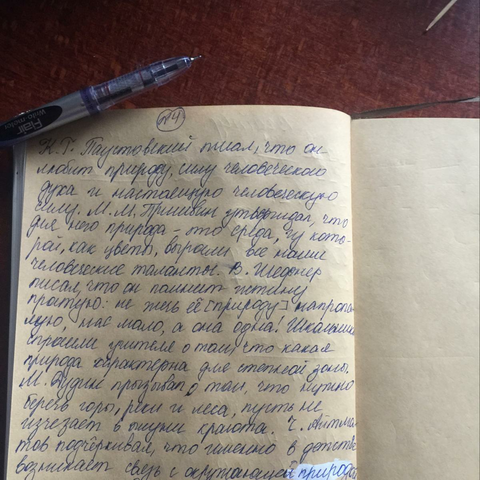 №4
К.Г. Паустовский писал, что он
любит природу, силу человеческого
духа и настоящую человеческую
силу. М.М. Пришвин утверждал, что
для него природа - это среда, из кото-
рой, как цветы, выросли все наши
человеческие таланты. В. Шефнер
писал, что он помнит истину
простую: не жги её [природу] напропа-
лую, нас мало, а она одна! Школьники
спросили учителя о том, что какая
природа характерна для степной зоны.
М. Дудин призывал о том, что нужно
беречь горы, реки и леса, пусть не
исчезает в мире красота. Ч. Айтма-
тов подчёркивал, что именно в детстве
возникает связь с окружающей природой
Flair